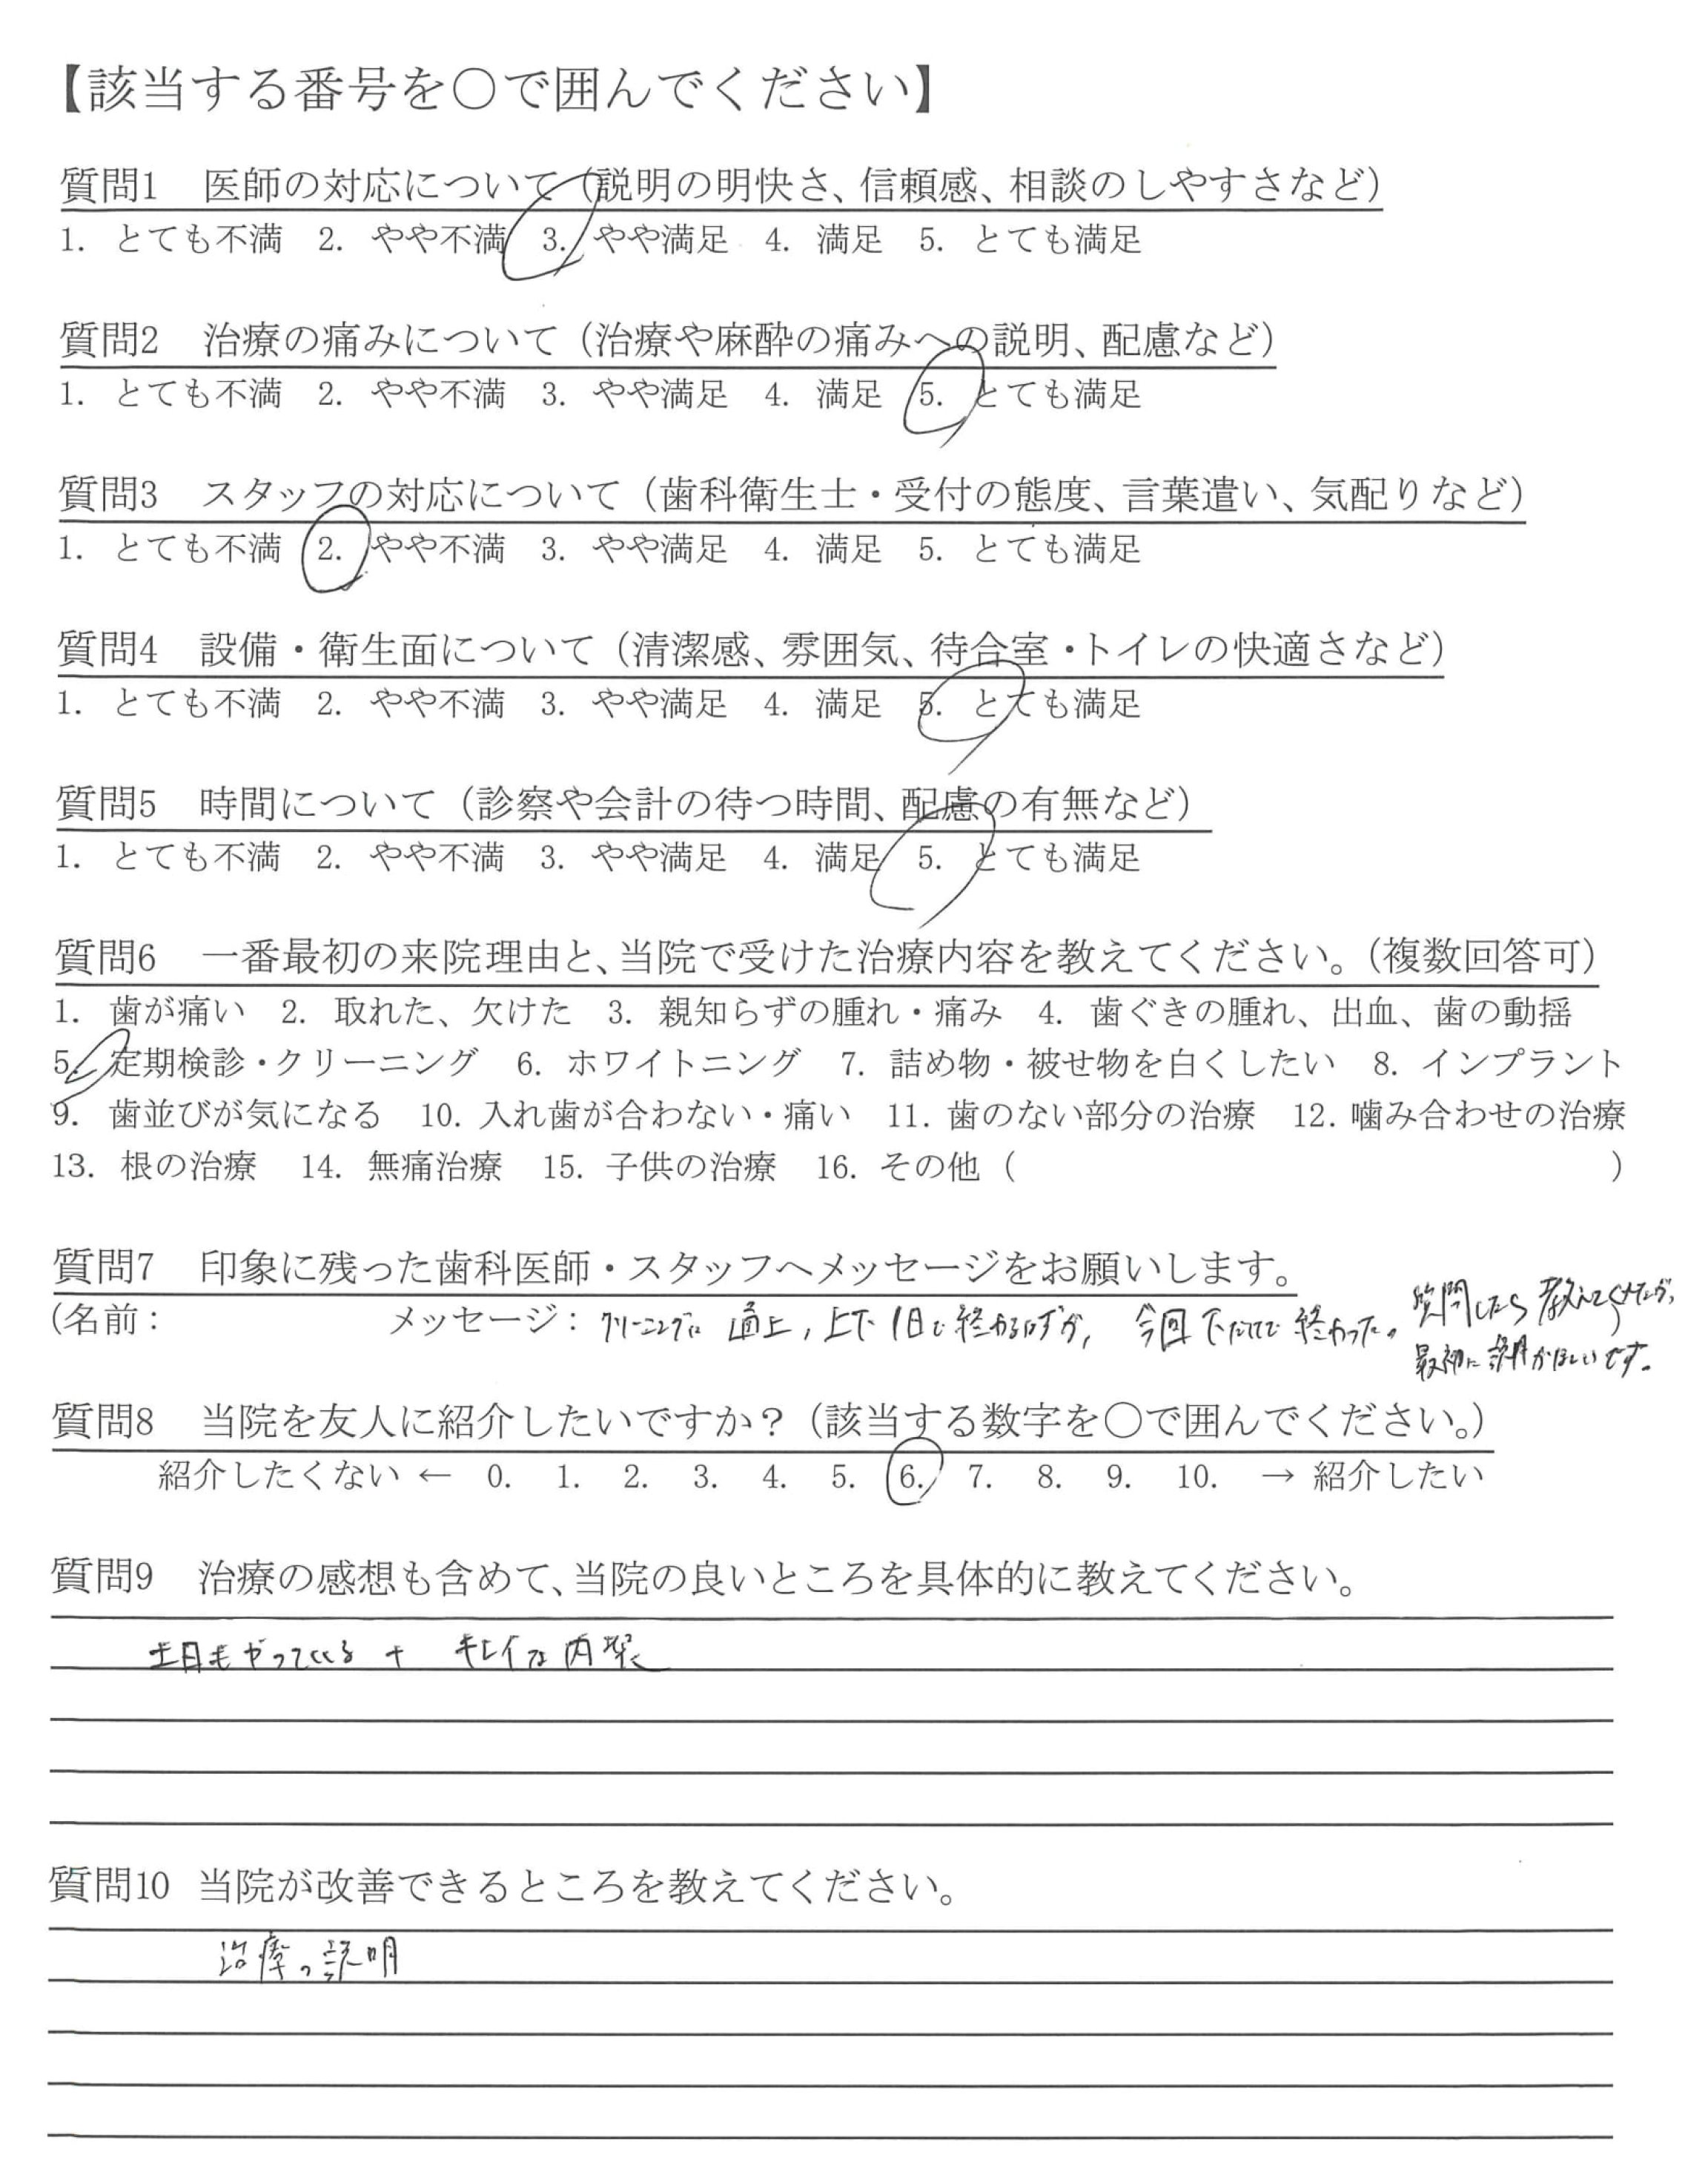 【該当する番号を○で囲んでください】
質問1 医師の対応について（説明の明快さ、信頼感、相談のしやすさなど）
1. とても不満 2. やや不満 3. やや満足 4. 満足 5. とても満足
質問2 治療の痛みについて（治療や麻酔の痛みへの説明、配慮など）
1. とても不満 2. やや不満 3. やや満足 4. 満足 5. とても満足
質問3 スタッフの対応について（歯科衛生士・受付の態度、言葉遣い、気配りなど）
1. とても不満 2. やや不満 3. やや満足 4. 満足 5. とても満足
質問4 設備・衛生面について（清潔感、雰囲気、待合室・トイレの快適さなど）
1. とても不満 2. やや不満 3. やや満足 4. 満足 5. とても満足
質問5 時間について（診察や会計の待つ時間、配慮の有無など）
1. とても不満 2. やや不満 3. やや満足 4. 満足 5. とても満足
質問6 一番最初の来院理由と、当院で受けた治療内容を教えてください。（複数回答可）
1. 歯が痛い 2. 取れた、欠けた 3. 親知らずの腫れ・痛み 4. 歯ぐきの腫れ、出血、歯の動揺
5. 定期検診・クリーニング 6. ホワイトニング 7. 詰め物・被せ物を白くしたい 8. インプラント
9. 歯並びが気になる 10. 入れ歯が合わない・痛い 11. 歯のない部分の治療 12. 噛み合わせの治療
13. 根の治療 14. 無痛治療 15. 子供の治療 16. その他（ ）
質問7 印象に残った歯科医師・スタッフへメッセージをお願いします。
（名前： メッセージ：クリーニングは 上下1日で終わるはずが、今回下だけで終わった。質問したら教えてくれたが、
最初に説明がほしいです。
質問8 当院を友人に紹介したいですか？（該当する数字を○で囲んでください。）
紹介したくない ← 0. 1. 2. 3. 4. 5. 6. 7. 8. 9. 10. → 紹介したい
質問9 治療の感想も含めて、当院の良いところを具体的に教えてください。
土日もやっている + キレイな内装
質問10 当院が改善できるところを教えてください。
治療の説明